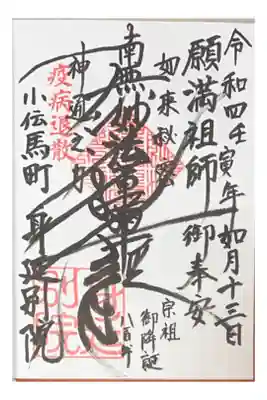 令和四壬寅年如月十三日
願満祖師御奉安
如来秘密
南無妙法蓮華経
神通之力
疫病退散
小伝馬町 身延別院
宗祖
御降誕
八百年
身延
別院